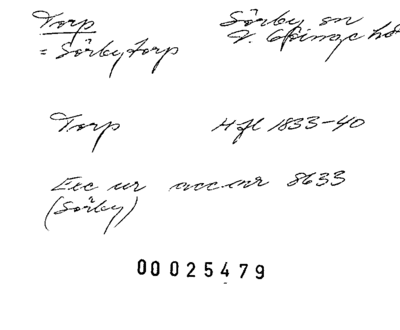 Torp
= Sörbytorp
Sörby sn
V. Göinge hd
Torp
Hfl 1833-40
Exc ur acc.nr 8633
(Sörby)
00025479